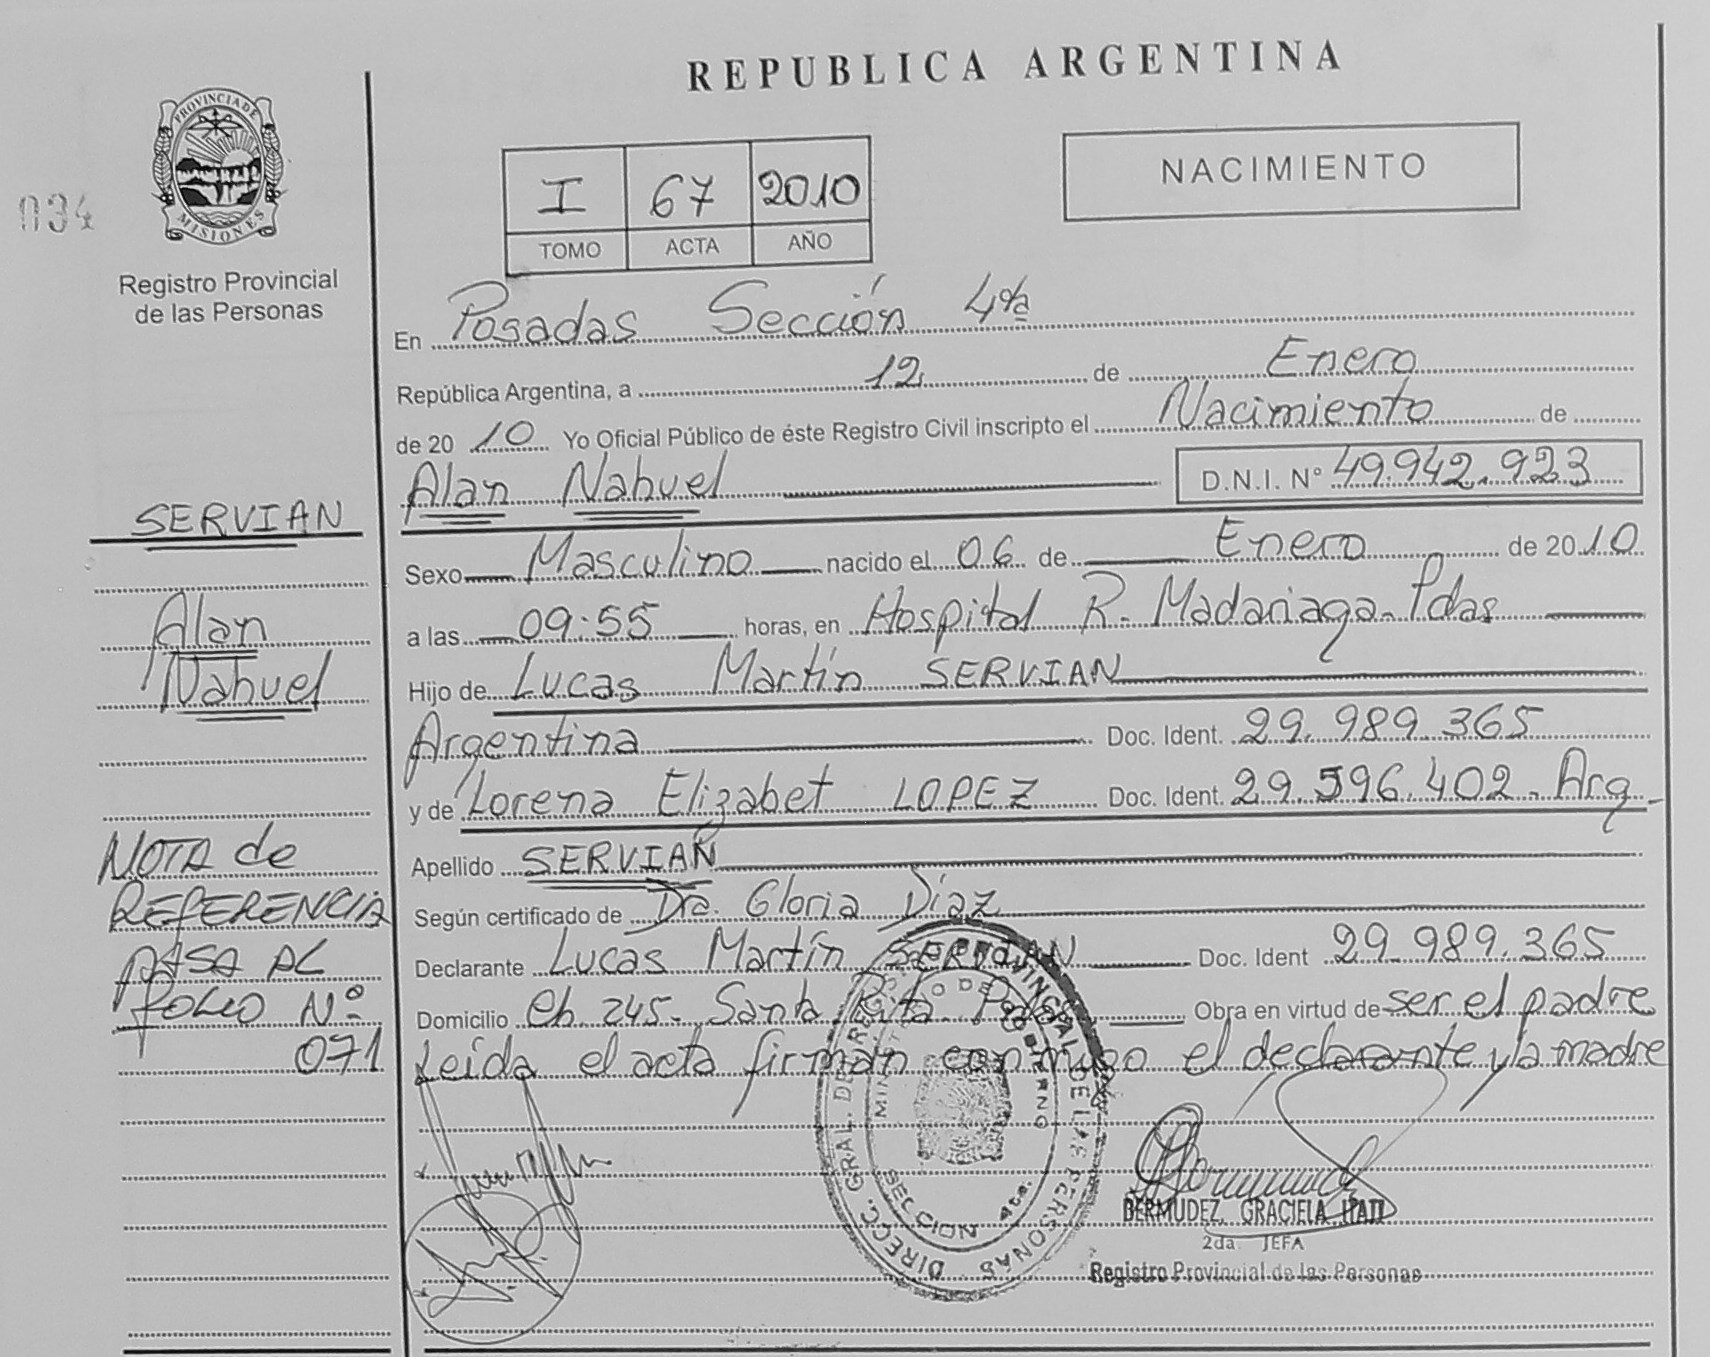 REPUBLICA ARGENTINA
PROVINCIA DE
MISIONES
034
Registro Provincial
de las Personas
I 67 2010
TOMO ACTA AÑO
NACIMIENTO
En Posadas Sección 4ta
República Argentina, a 12 de Enero
de 2010 Yo Oficial Público de éste Registro Civil inscripto el Nacimiento de
Alan Nahuel D.N.I. Nº 49.942.923
Sexo Masculino nacido el 06 de Enero de 2010
a las 09:55 horas, en Hospital R. Madariaga-Pdas
Hijo de Lucas Martín SERVIAN
Argentina Doc. Ident. 29.989.365
y de Lorena Elizabet LOPEZ Doc. Ident. 29.596.402. Arg.
Apellido SERVIAN
Según certificado de Dra. Gloria Díaz
Declarante Lucas Martín SERVIAN Doc. Ident 29.989.365
Domicilio Ch. 245. Santa Rita. Pdas Obra en virtud de ser el padre
Leída el acta firman conmigo el declarante y la madre
SERVIAN
Alan
Nahuel
NOTA de
REFERENCIA
PASA AL
FOLIO Nº
071
DIRECC. GRAL. DE REGISTRO PROVINCIAL DE LAS PERSONAS
MINISTERIO DE GOBIERNO
SECCION 4ta.
BERMUDEZ, GRACIELA ITATI
2da JEFA
Registro Provincial de las Personas